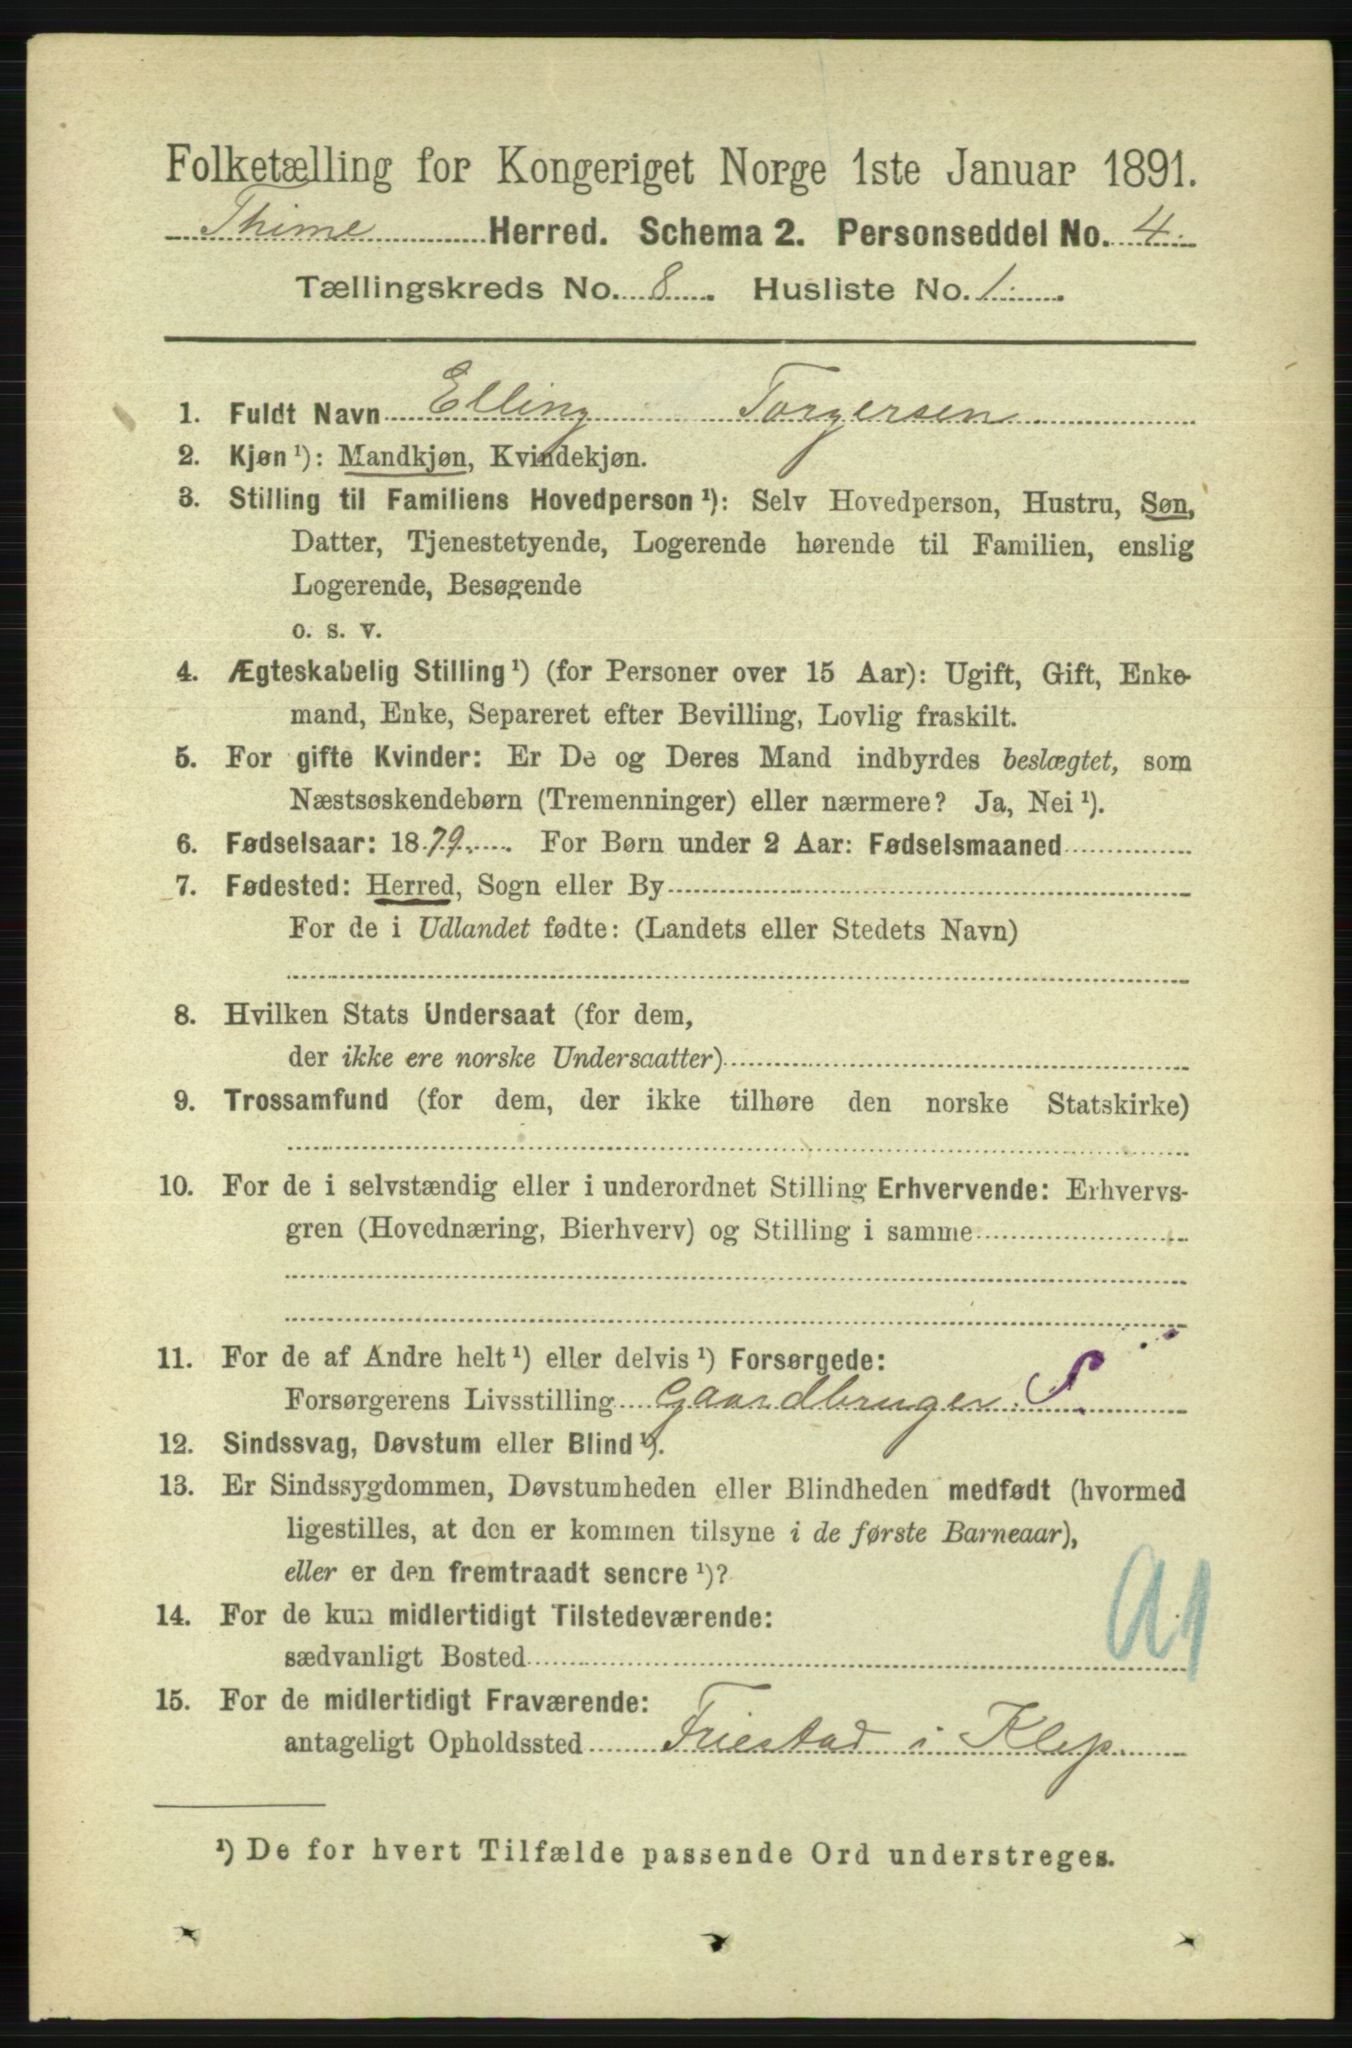 Folketælling for Kongeriget Norge 1ste Januar 1891.
Thime Herred. Schema 2. Personseddel No. 4.
Tællingskreds No. 8. Husliste No. 1.
1. Fuldt Navn Elling Torgersen
2. Kjøn ¹): Mandkjøn, Kvindekjøn.
3. Stilling til Familiens Hovedperson ¹): Selv Hovedperson, Hustru, Søn,
Datter, Tjenestetyende, Logerende hørende til Familien, enslig
Logerende, Besøgende
o. s. v.
4. Ægteskabelig Stilling ¹) (for Personer over 15 Aar): Ugift, Gift, Enke-
mand, Enke, Separeret efter Bevilling, Lovlig fraskilt.
5. For gifte Kvinder: Er De og Deres Mand indbyrdes beslægtet, som
Næstsøskendebørn (Tremenninger) eller nærmere? Ja, Nei ¹).
6. Fødselsaar: 1879. For Børn under 2 Aar: Fødselsmaaned
7. Fødested: Herred, Sogn eller By
For de i Udlandet fødte: (Landets eller Stedets Navn)
8. Hvilken Stats Undersaat (for dem,
der ikke ere norske Undersaatter)
9. Trossamfund (for dem, der ikke tilhøre den norske Statskirke)
10. For de i selvstændig eller i underordnet Stilling Erhvervende: Erhvervs-
gren (Hovednæring, Bierhverv) og Stilling i samme
11. For de af Andre helt ¹) eller delvis ¹) Forsørgede:
Forsørgerens Livsstilling Gaardbruger. S.
12. Sindssvag, Døvstum eller Blind ¹).
13. Er Sindssygdommen, Døvstumheden eller Blindheden medfødt (hvormed
ligestilles, at den er kommen tilsyne i de første Barneaar),
eller er den fremtraadt senere ¹)?
14. For de kun midlertidigt Tilstedeværende:
sædvanligt Bosted
a1
15. For de midlertidigt Fraværende:
antageligt Opholdssted Friestad i Klep.
¹) De for hvert Tilfælde passende Ord understreges.